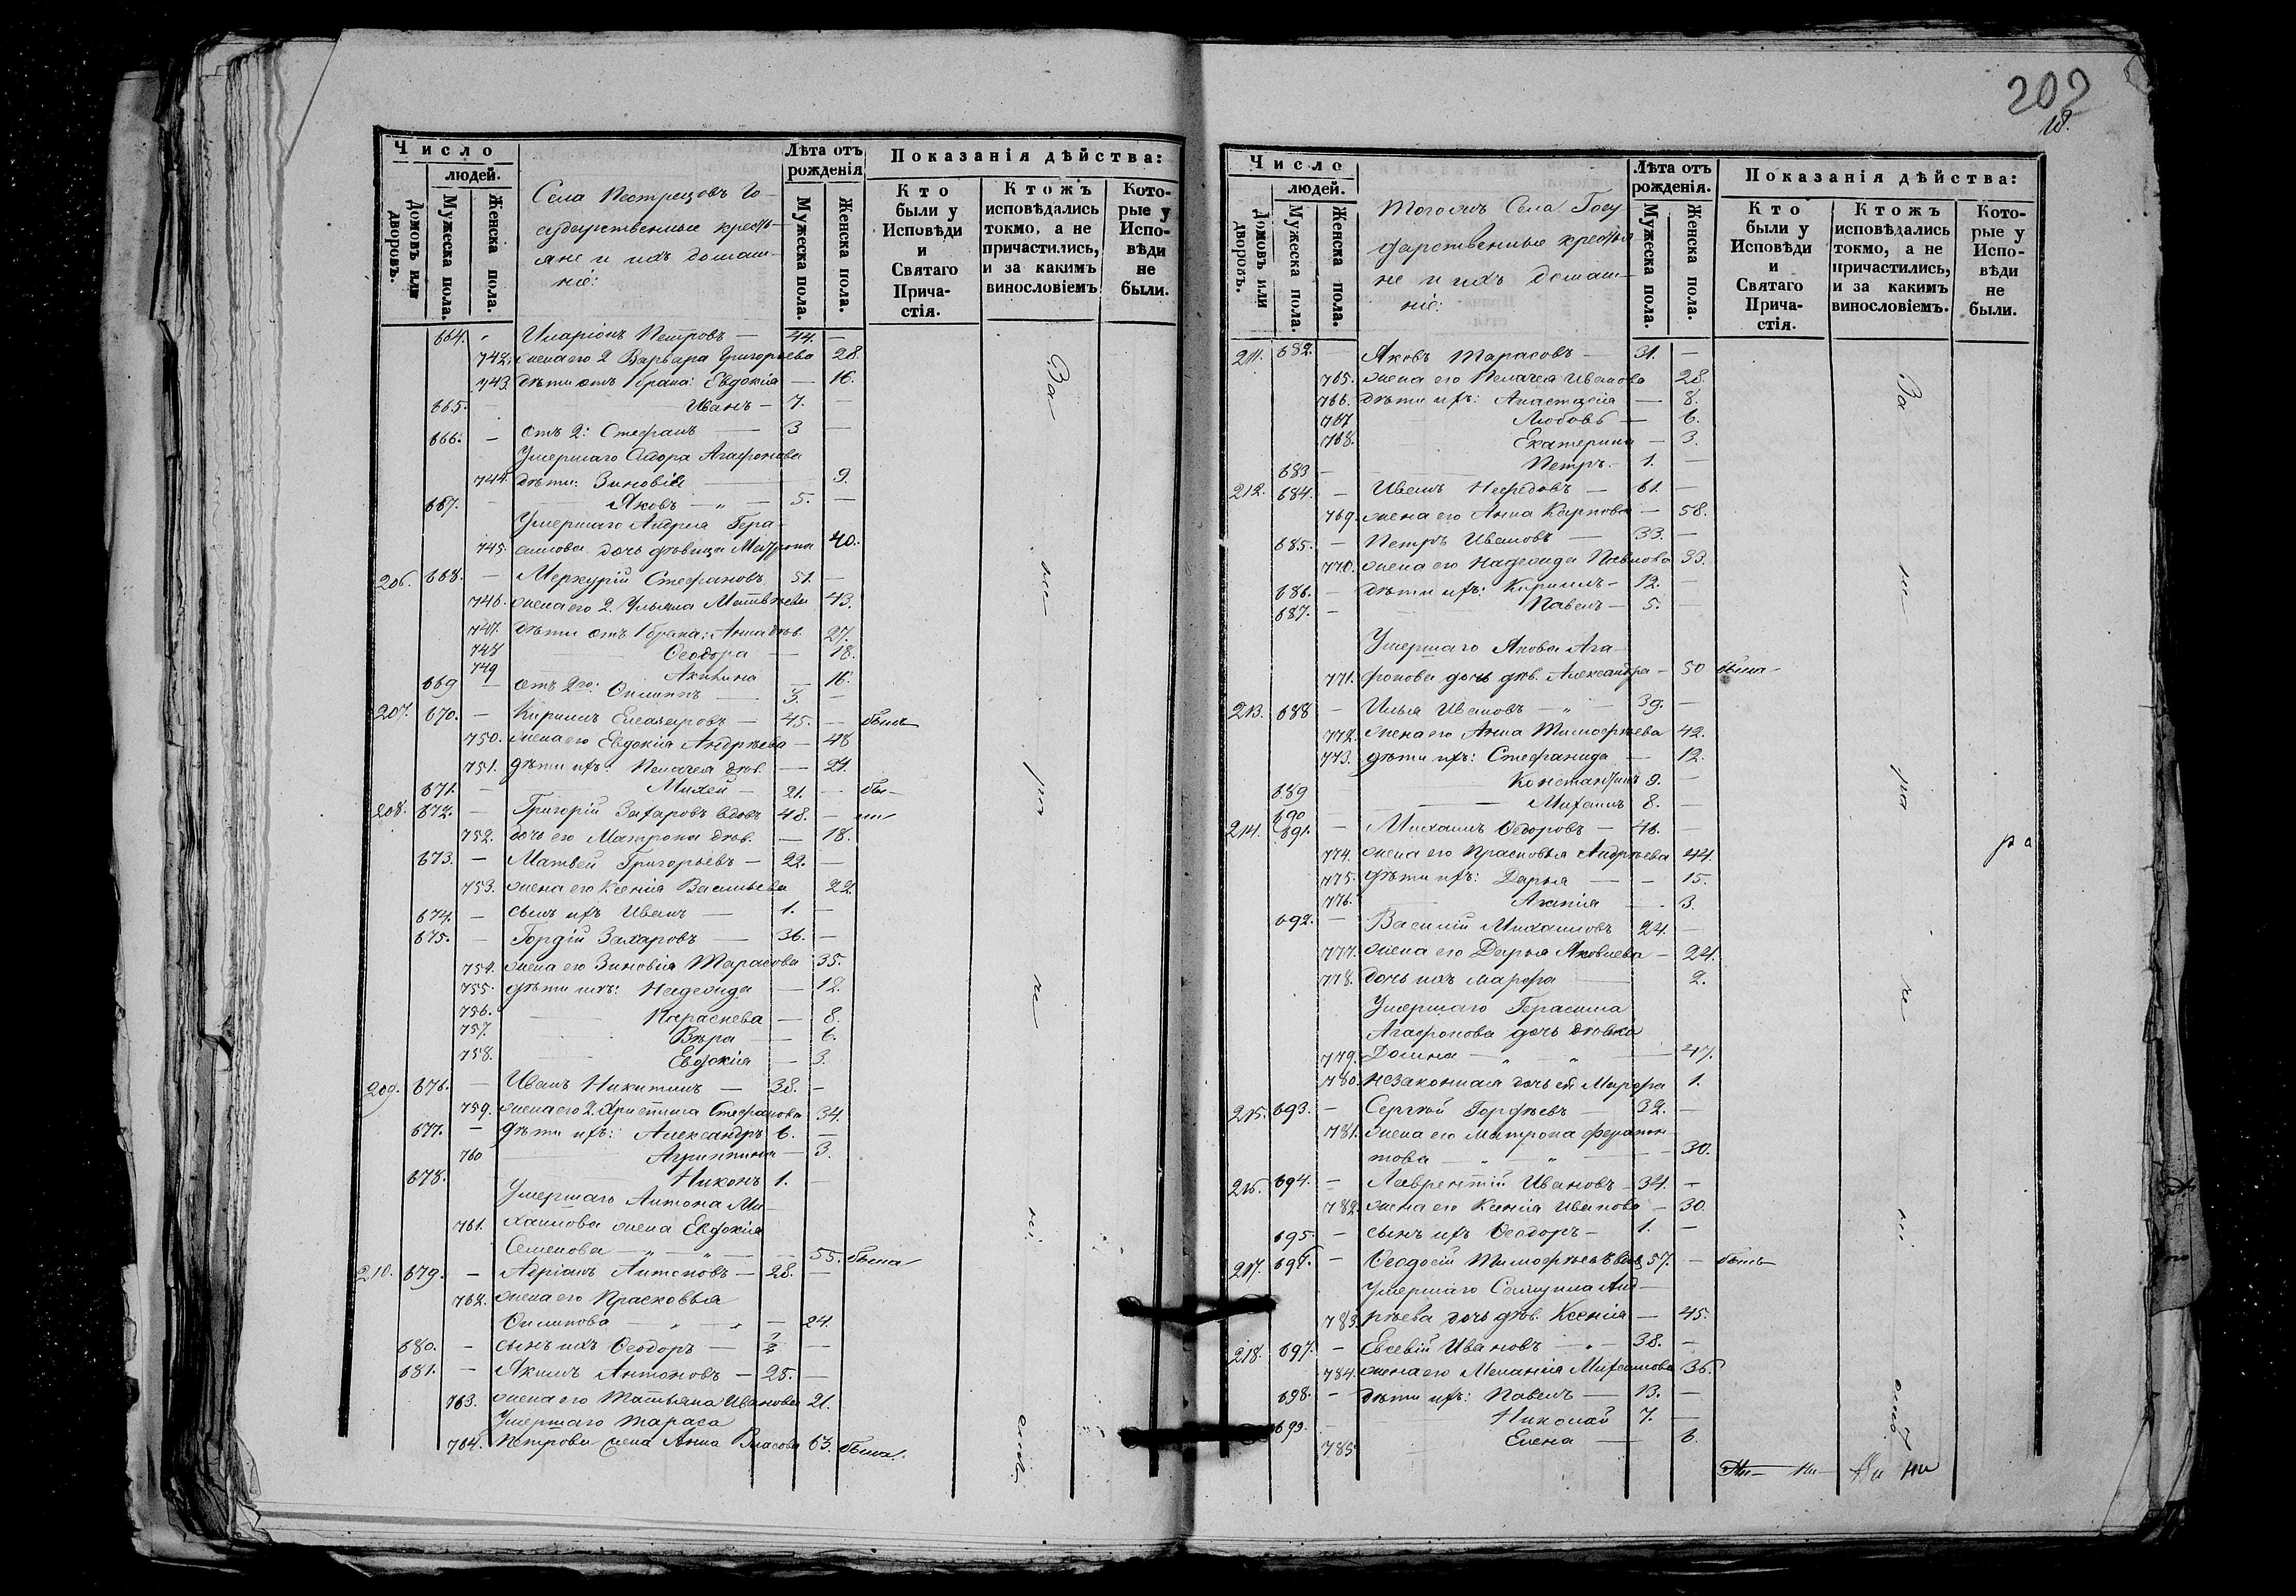 202
Число
людей.
Домовъ или дворовъ.
Мужеска пола.
Женска пола.
Села Пестрецовъ Го-
сударственные кресть-
яне и ихъ домаш-
ніе:
Лѣта отъ рожденія
Мужеска пола.
Женска пола.
Показанія дѣйства:
Кто были у Исповѣди и Святаго Прича-стія.
Ктожъ исповѣдались токмо, а не причастились, и за какимъ винословіемъ
Кото-рые у Испо-вѣди не были.
664. Иларіонъ Петровъ — 44. —
742. жена его 2 Варвара Григорьева 28.
743. дѣти отъ 1 брака: Евдокія — 16.
665. — Иванъ — 7. —
666. — отъ 2: Стефанъ — 3 —
Умершаго Сидора Агафонова
744. дѣти: Зиновія — 9.
667. — Яковъ — „ — 5. —
Умершаго Андрея Гера-
745. симова дочь дѣвица Матрона 40.
206. 668. — Меркурій Стефановъ 51. —
746. жена его 2. Ульяна Матвѣева 43.
747. дѣти отъ 1 брака: Анна дѣв. 27.
748 Ѳеодора — 18.
749 Акилина — 16.
669 — отъ 2го: Филиппъ — 3. —
207. 670. — Кириллъ Елеазаровъ — 45. — былъ
750. жена его Евдокія Андрѣева — 48
751. дѣти ихъ: Пелагея дѣв. — 21.
671. — Михей — 21. — бы-
208. 672. — Григорій Захаровъ вдовъ 48. — ли
752. дочь его Матрона дѣв. — 18.
673. — Матвей Григорьевъ — 22. —
753. жена его Ксенія Васильева 22.
674. — сынъ ихъ Иванъ — 1. —
675. — Гордій Захаровъ — 36. —
754. жена его Зиновія Тарасова 35.
755. дѣти ихъ: Надежда — 12.
756. Параскева — 8.
757. Вѣра — 6.
758. Евдокія — 3.
209. 676. — Иванъ Никитинъ — 38. —
759. жена его 2. Христина Стефанова 34.
677. — дѣти ихъ: Александръ 6. —
760 Агриппина — 3.
678. Никонъ 1. —
Умершаго Антона Ми-
761. хаилова жена Евдокія
Семенова — „ — „ — 55. была
210. 679. — Адріанъ Антоновъ — 28. —
762. жена его Прасковья
Филипова — „ — „ — 24.
680. — сынъ ихъ Ѳеодоръ —
681. — Якимъ Антоновъ — 25. —
763. жена его Татьяна Иванова 21.
Умершаго Тараса
764. Петрова жена Анна Власова 63. была.
Число
людей.
Домовъ или дворовъ.
Мужеска пола.
Женска пола.
Тогожъ Села Госу
дарственные крестья
не и ихъ домаш-
ніе:
Лѣта отъ рожденія.
Мужеска пола.
Женска пола.
Показанія дѣйства:
Кто были у Исповѣди и Святаго Прича-стія.
Ктожъ исповѣдались токмо, а не причастились, и за какимъ винословіемъ.
Кото-рые у Испо-вѣди не были.
211. 682. Яковъ Тарасовъ — 31. —
765. жена его Пелагея Иванова 28.
766. дѣти ихъ: Анастасія — 8.
767 Любовь — 6.
768. Екатерина — 3.
683 — Петръ. — 1. —
212. 684. — Иванъ Нефедовъ — 61. —
769. жена его Анна Карпова — 58.
685. — Петръ Ивановъ — 33. —
770. жена его Надежда Павлова 33.
686. — дѣти ихъ: Кириллъ — 12. —
687. — Павелъ — 5. —
Умершаго Якова Ага-
771. фонова дочь дѣв. Александра — 50 была
213. 688 — Илья Ивановъ — „ — 39. —
772. жена его Анна Тимофѣева 42.
773. дѣти ихъ: Стефанида — 12.
689 Константинъ 9. —
690 — Михаилъ 8. —
214. 691. — Михаилъ Ѳедоровъ — 46. —
774. жена его Прасковья Андрѣева 44.
775. дѣти ихъ: Дарья — 15.
776. Анисія — 3.
692. — Василій Михаиловъ 24. —
777. жена его Дарья Яковлева — 24.
778. дочь ихъ Марфа — 2.
Умершаго Герасима
Агафонова дочь дѣвка
779. Домна — „ — „ — 47.
780. незаконная дочь ея Марфа 1.
215. 693. — Сергѣй Гордѣевъ — 32. —
781. жена его Матрона Ферапон-
това — „ — „ — 30.
216. 694. — Лаврентій Ивановъ — 34. —
782. жена его Ксенія Иванова — 30.
695. — сынъ ихъ Ѳеодоръ — 1. —
217. 696. — Ѳеодосій Тимофѣевъ вдов. 57. — былъ
Умершаго Самуила Анд-
783. рѣева дочь дѣв. Ксенія — 45.
218. 697. — Евсевій Ивановъ — „ — 38. —
784. жена его Меланія Михаилова 36.
698. — дѣти ихъ: Павелъ — 13. —
699. Николай 7. —
785. Елена — 6.